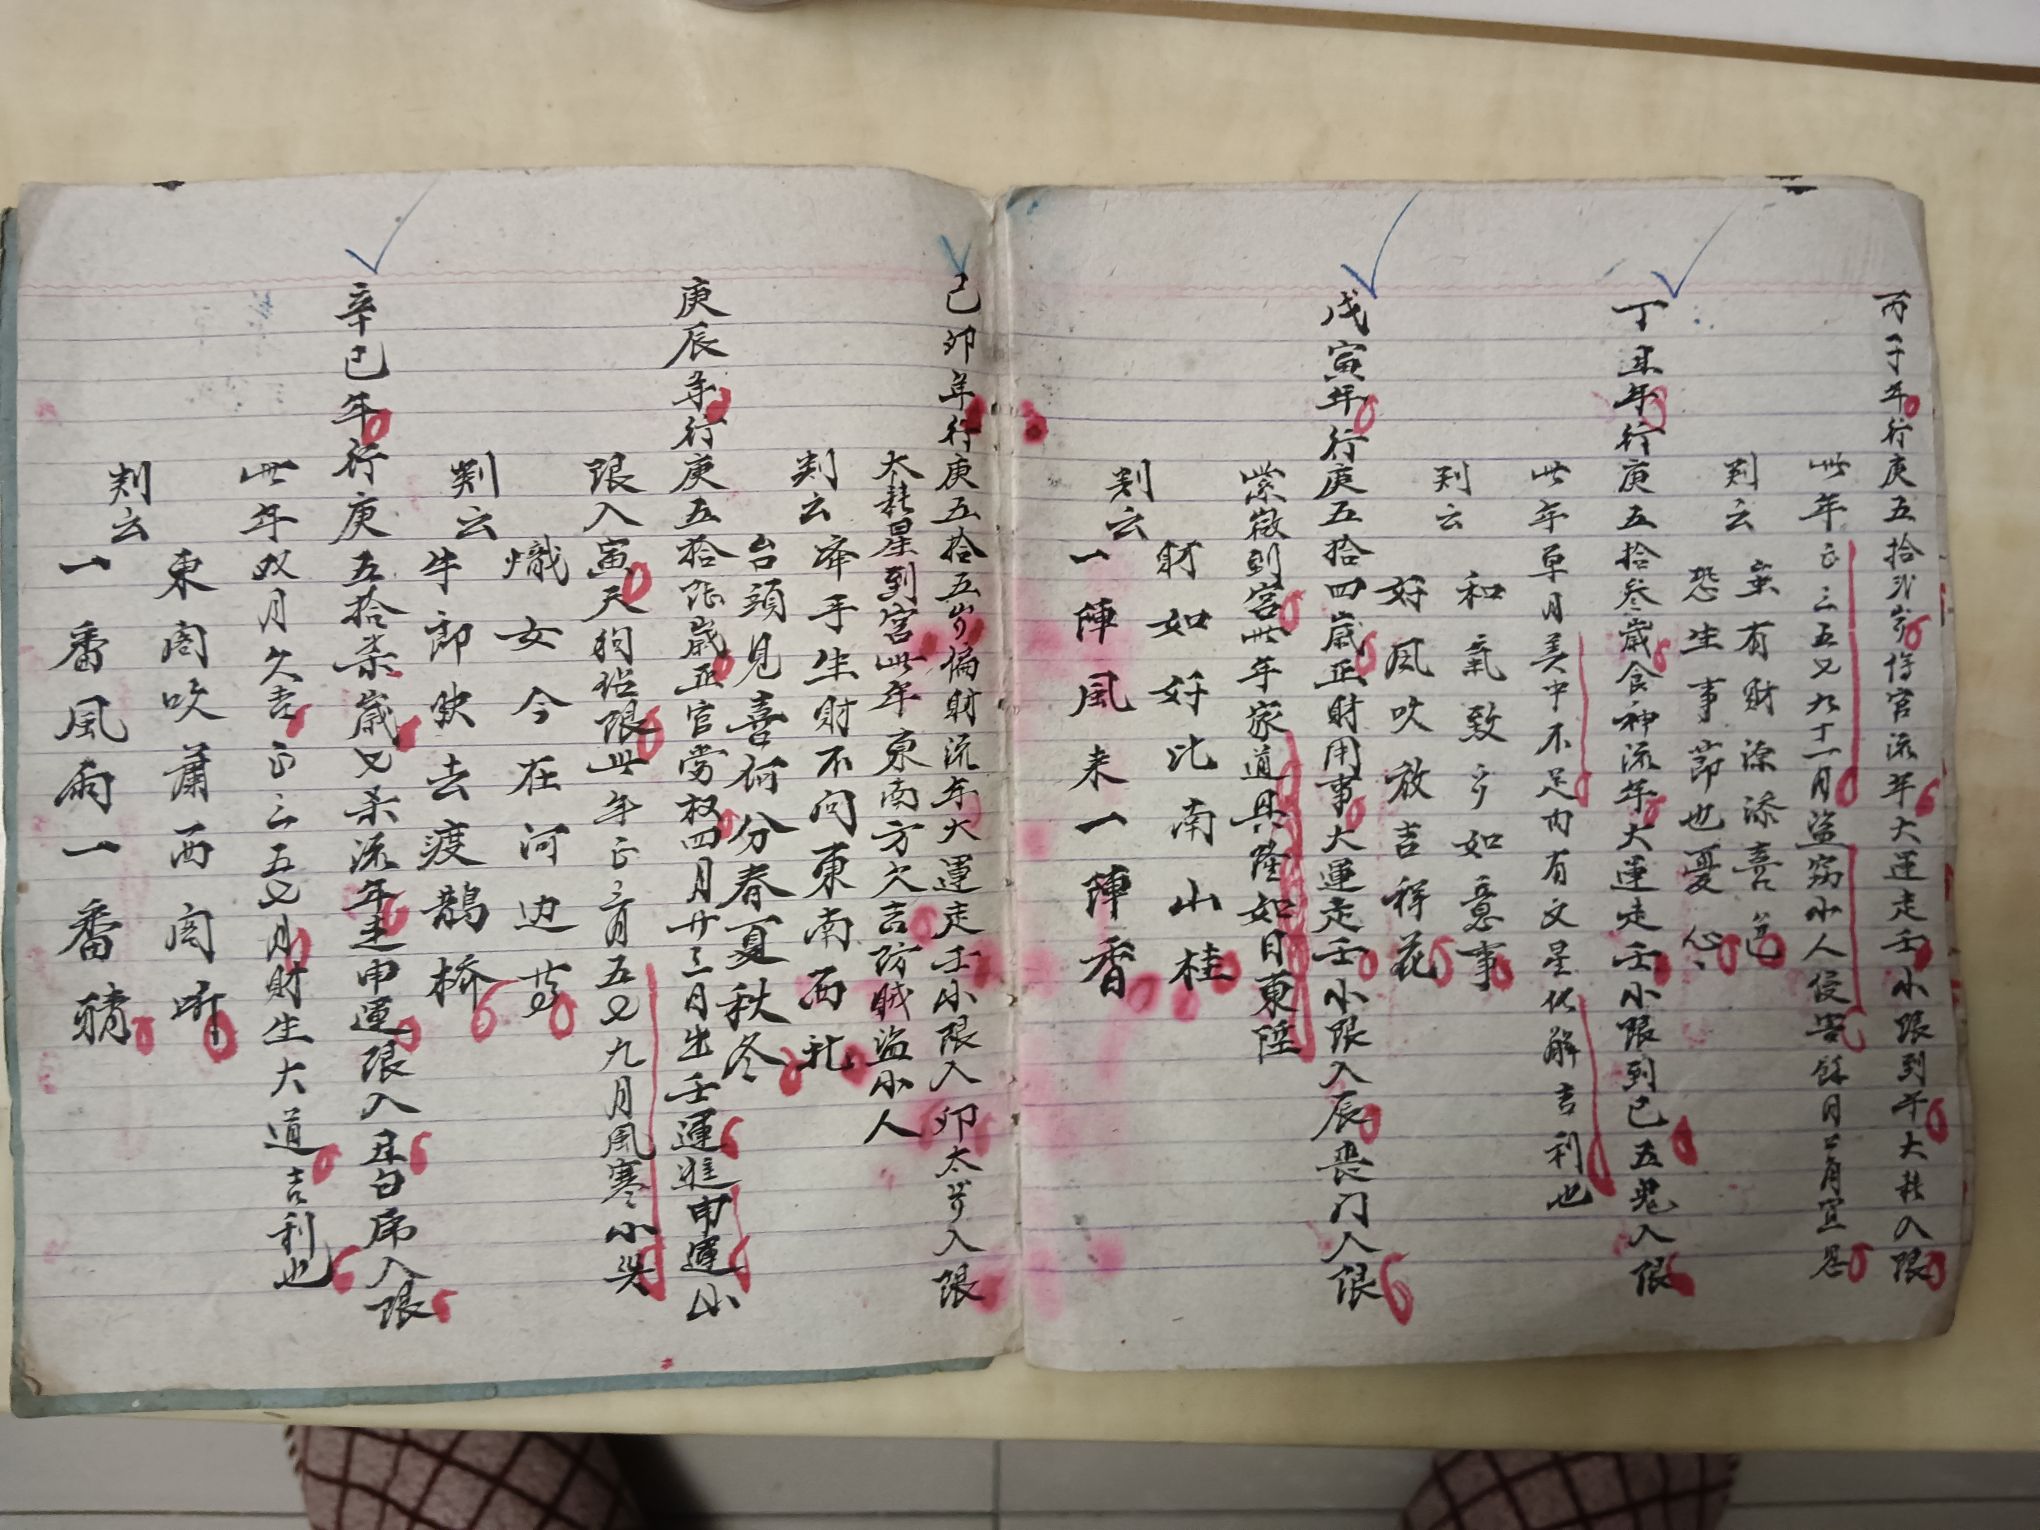 丙子年行庚五拾弍岁傷官流年大運走壬小限到午大耗入限
此年正三五七九十一月盜窃小人侵害餘月宜忍
判云
宜有財源添喜色
恐生事節也憂心
丁丑年行庚五拾叁歲食神流年大運走壬小限到巳五鬼入限
此年单月美中不足内有文星化解吉利也
判云
和氣致予如意事
好風吹放吉祥花
戊寅年行庚五拾四歲正財用事大運走壬小限入辰喪门入限
紫微到宮此年家道興隆如日東陞
判云
財如好比南山桂
一陣風来一陣香
己卯年行庚五拾五岁偏財流年大運走壬小限入卯太岁入限
太耗星到宮此年東南方欠吉防賊盜小人
判云
牵手生財不问東南西北
台頭見喜何分春夏秋冬
庚辰年行庚五拾陆歲正官当权四月廿三日出壬運進申運小
限入寅天狗佔限此年正三月五七九月風寒小失
判云
熾女今在河边
牛郎缺去渡鵲桥
辛巳年行庚五拾柒歲七杀流年走申運限入丑白虎入限
此年双月欠吉正三五七月財生大道吉利也
判云
東阁吹萧西阁听
一番風雨一番晴